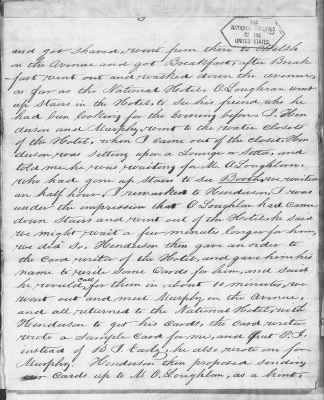 3
THE
NATIONAL ARCHIVES
OF THE
UNITED STATES
and got shaved, went from there to Welsh
on the Avenue and got Breakfast, after Break-
fast went out and walked down the avenue,
as far as the National Hotel, O'Loughlan went
up Stairs in the Hotel, to see his friend who he
had been looking for the evening before, I, Hen
derson and Murphy, went to the water closets
of the Hotel, when I came out of the closet, Hen
derson, was setting upon a Lounge or settee, and
told me he was waiting for M. O'Loughlan,
who had gone up stairs to see Booth, we waited
an half hour, I remarked to Henderson, I was
under the impression that O'Loughlan had came
down stairs and went out of the Hotel, he said
we might wait a few minutes longer for him,
we did so, Henderson then gave an order to
the Card writer of the Hotel, and gave him his
name to write Some Cards for him, and said
he would call for them in about 10 minutes, we
went out and meet Murphy on the Avenue,
and all returned to the National Hotel, with
Henderson to get his Cards, the Card writer
wrote a Sample Card for me, and put P. J.
instead of B. J. Early, he also wrote one for
Murphy. Henderson then proposed sending
our Cards up to M. O'Loughlan, as a hint,